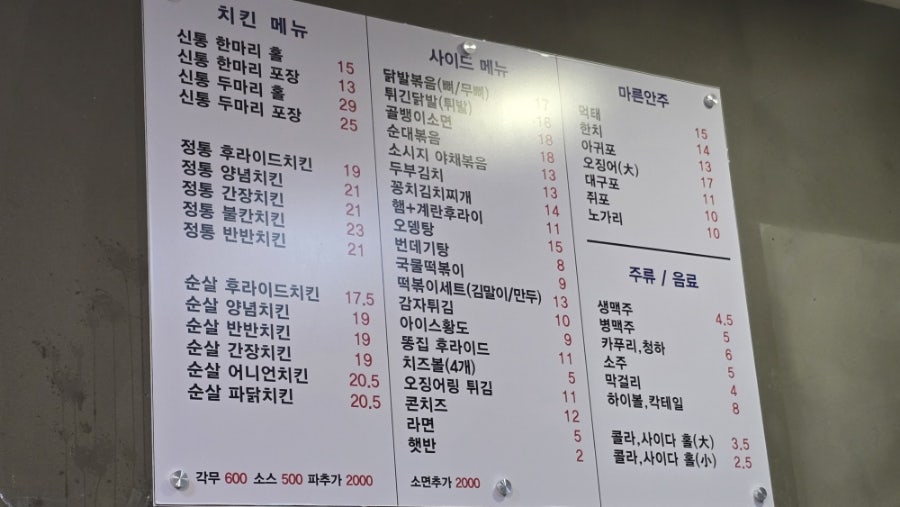 치킨 메뉴
신통 한마리 홀 15
신통 한마리 포장 13
신통 두마리 홀 29
신통 두마리 포장 25
정통 후라이드치킨 19
정통 양념치킨 21
정통 간장치킨 21
정통 불칸치킨 23
정통 반반치킨 21
순살 후라이드치킨 17.5
순살 양념치킨 19
순살 반반치킨 19
순살 간장치킨 19
순살 어니언치킨 20.5
순살 파닭치킨 20.5
각무 600 소스 500 파추가 2000
사이드 메뉴
닭발볶음(뼈/무뼈) 17
튀긴닭발(튀발)
골뱅이소면 18
순대볶음 18
소시지 야채볶음 13
두부김치 13
꽁치김치찌개 14
햄+계란후라이 11
오뎅탕 15
번데기탕 8
국물떡볶이 9
떡볶이세트(김말이/만두) 13
감자튀김 10
아이스황도 9
똥집 후라이드 11
치즈볼(4개) 5
오징어링 튀김 11
콘치즈 12
라면 5
햇반 2
소면추가 2000
마른안주
먹태 15
한치 14
아귀포 13
오징어(大) 17
대구포 11
쥐포 10
노가리 10
주류 / 음료
생맥주 4.5
병맥주 5
카푸리,청하 6
소주 5
막걸리 4
하이볼,칵테일 8
콜라,사이다 홀(大) 3.5
콜라,사이다 홀(小) 2.5